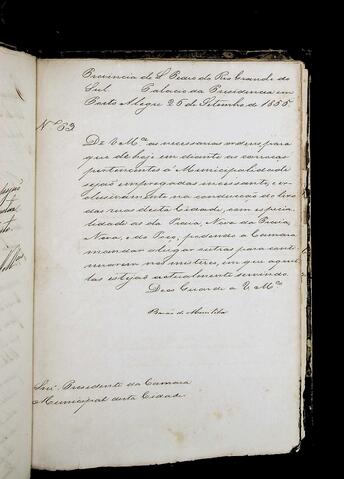 Provincia de S. Pedro do Rio Grande do
Sul. Palacio da Presidencia em
Porto Alegre 25 de Setembro de 1855.
Nº 63
De V Mce as necessarias ordens para
que de hoje em diante as carroças
pertencentes á Municipalidade
sejão empregadas incessante, e ex-
clusivamente na conducção do lixo
das ruas desta Cidade, com especia-
lidade as da Praia, Nova da Praia,
Nova, e do Poço, podendo a Camara
mandar alugar outras para conti-
nuarem nos misteres, em que aquel-
las estejão actualmente servindo.
Deos Guarde a V Mce
Barão de Muritiba
Snr. Presidente da Camara
Municipal desta Cidade